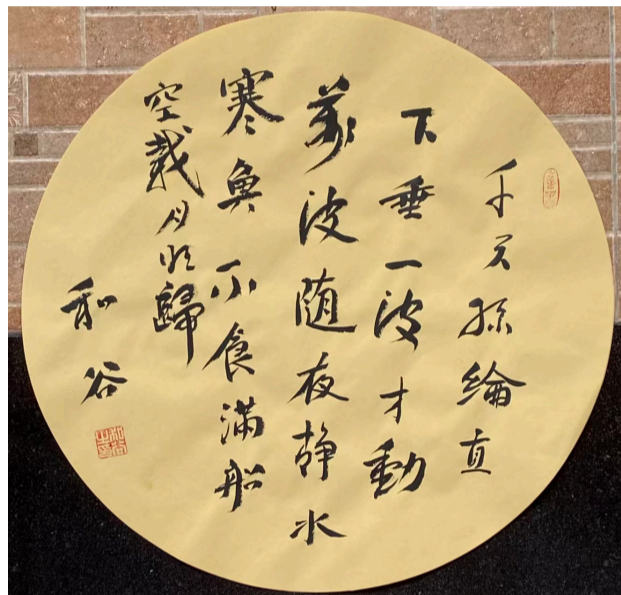 千尺絲綸直
下垂一波才動
萬波随夜静水
寒魚不食滿船
空載月明歸
和谷